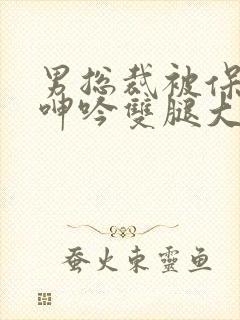 男总裁被保
呻吟雙腿大
蚕火东靈鱼